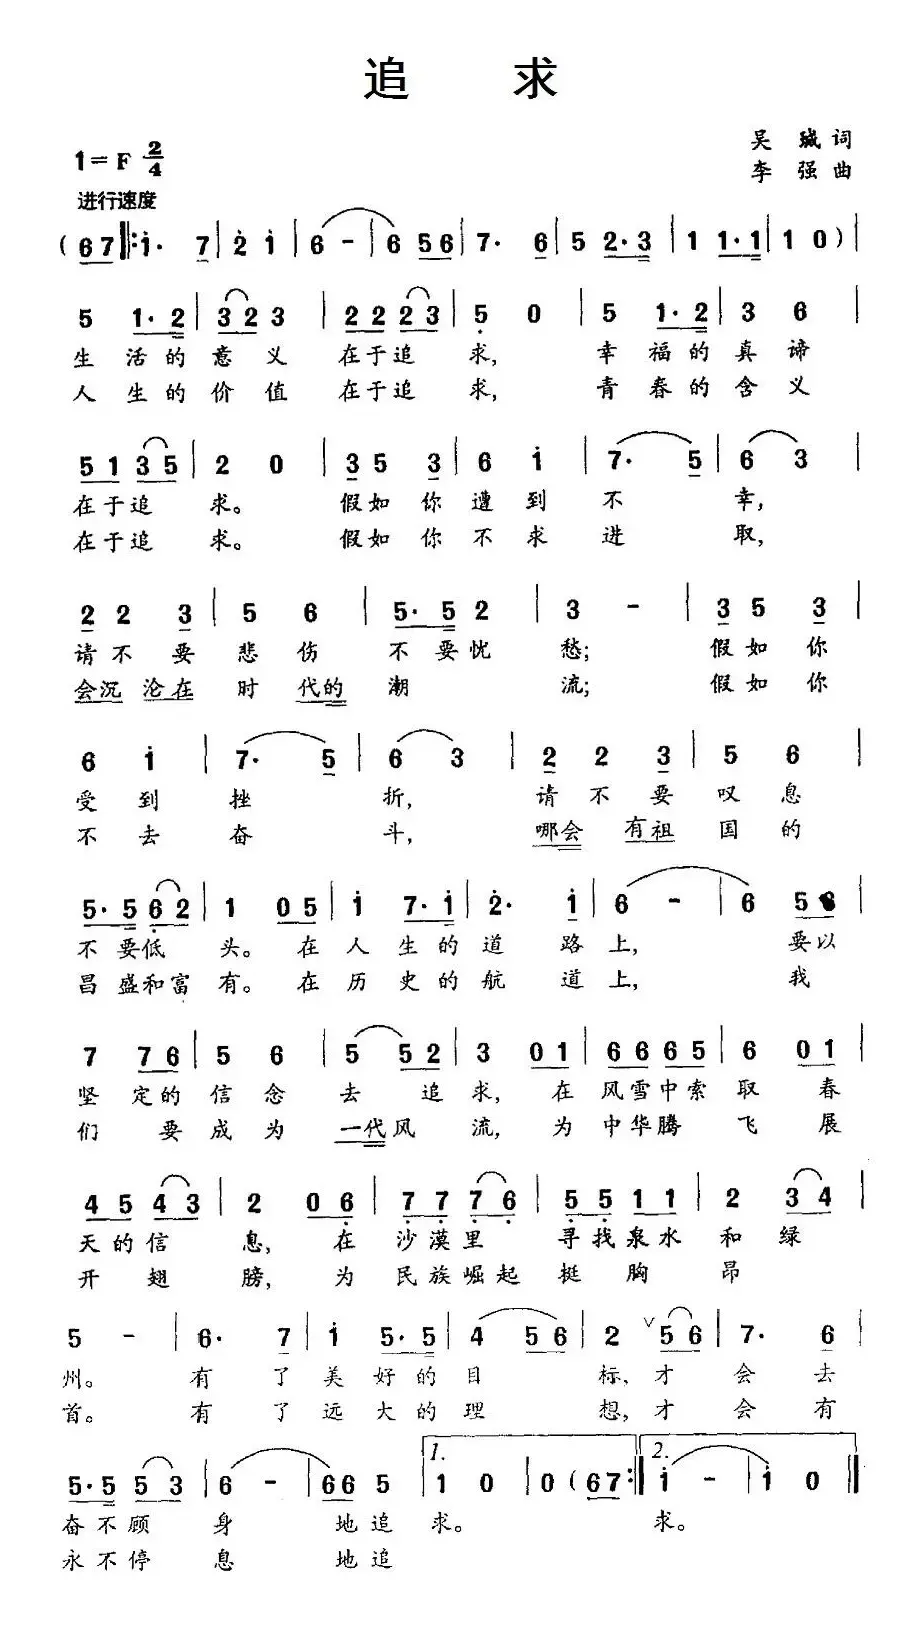 追 求
吴 珹 词
李 强 曲
1=F 2/4
进行速度
( 6 7 ‖: i· 7 | 2 i | 6 - | 6 5 6 | 7· 6 | 5 2·3 | 1 1·1 | 1 0 ) |
5 1·2 | 3 2 3 | 2 2 2 3 | 5 0 | 5 1·2 | 3 6 |
生 活的 意 义 在于追 求, 幸 福的真 谛
人 生的 价 值 在于追 求, 青 春的含 义
5 1 3 5 | 2 0 | 3 5 3 | 6 i | 7· 5 | 6 3 |
在于追 求。 假如你 遭到不 幸,
在于追 求。 假如你 不求进 取,
2 2 3 | 5 6 | 5·5 2 | 3 - | 3 5 3 |
请不要 悲伤 不要忧 愁; 假如你
会沉沦在 时代的潮 流; 假如你
6 i | 7· 5 | 6 3 | 2 2 3 | 5 6 |
受到挫 折, 请不要叹息
不去奋 斗, 哪会有祖国的
5·5 6 2 | 1 0 5 | i 7·i | 2· i | 6 - | 6 5 6 |
不要低 头。 在人生的道 路上, 要以
昌盛和富有。 在历史的航 道上, 我
7 7 6 | 5 6 | 5 5 2 | 3 0 1 | 6 6 6 5 | 6 0 1 |
坚 定的信念去 追 求, 在风雪中索取 春
们 要成为一代风 流, 为中华腾 飞 展
4 5 4 3 | 2 0 6 | 7 7 7 6 | 5 5 1 1 | 2 3 4 |
天的信 息, 在沙漠里 寻找泉水和绿
开 翅 膀, 为民族崛起挺 胸 昂
5 - | 6· 7 | i 5·5 | 4 5 6 | 2 ∨ 5 6 | 7· 6 |
州。 有 了美好的目 标, 才 会 去
首。 有 了远大的理 想, 才 会 有
5·5 5 3 | 6 - | 6 6 5 | 1. 1 0 | 0 ( 6 7 :‖ 2. i - | i 0 ‖
奋不顾 身 地追 求。 求。
永不停 息 地追